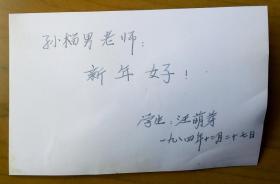 孙猫男老师：
新年好！
学生：汪萌芽
一九八四年十二月二十七日